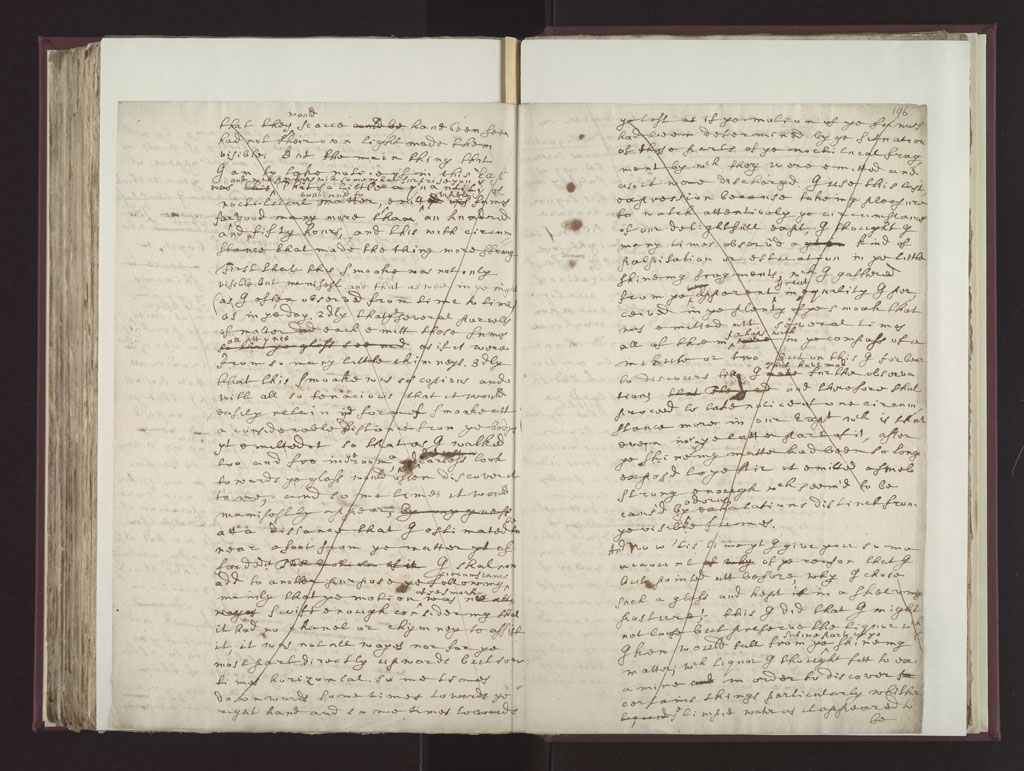 would
that they scarce could be have been seen
had not their own light made them
visible. But the main thing that
I am to take notice of in this last
and
was this that so little a quantity of
continued to visible
noctilucal matter, emitt fumes
for good many more than an hundred
and fifty hours, and this with circum
stance that made the thing more strang
First that this smoake was not only
visible but manifest, and that as well in ye night
as I often observed from time to time
as in ye day. 2dly that several parcells
of matter did each emitt those fumes
all att once
so that ye glass seemed as if it were
from so many little chimneys. 3dly
that this smoake was so copious and
with all so tenacious that it would
easily retein ye form of smoake att
a considerable distance from ye body
yt emitted it so that as I walked
too and fro in ye roome a look
towards ye glass would often discover it
to me, and some times it would
manifestly appear, by my guess
att a distance that I estimated to
near a foot from ye matter yt af
forded it I shal now
circumstances
add to another purpose ye following,
att or remarks
mainly that ye motion was not allways
swift enough considering that
it had no chanel or chymney to assist
it, it was not all wayes nor for ye
most part directly upwards but some
times horizontal some times
downwards some times towards ye
right hand and some times towards
196
ye left as if ye motion of ye fumes
had been determined by ye situation
of those parts of ye noctilucal frag
ments by wch they were emitted and
as it were discharged. I use this last
expression because takeing pleasure
to watch attentively ye circumstances
of our delightfull expt, I thought I
many times observed a kind of
palpitation or estuation in ye little
shineing fragments, wch I gathered
great
from ye apparent inequality I per
ceived in ye plenty of ye smoak that
was emitted att several times
all of them in ye compass of a
minute or two But on this I forbear
that have made
to discours till I make further observa
tions and therefore shal
proceed to take notice of one circum
stance more in our Expt wch is that
even in ye latter part of it, after
ye shineing matter had been so long
exposed to ye air it emitted a smel
strong enough wch seem'd to be
odorous
caused by exhalations distinct from
ye visible fumes.
And Now 'tis time yt I give you some
account of ye reason that I
but pointed att before why I chose
such a glass and kept it in a shelveing
posture; this I did that I might
not loose but preserve the liquor wch
subtile parts of ye
I knew would fall from ye shineing
matter, wch liquor I thought fitt to ex
amine in order to discover
certaine things particularly whether
ye limpid water as it appeared to
be